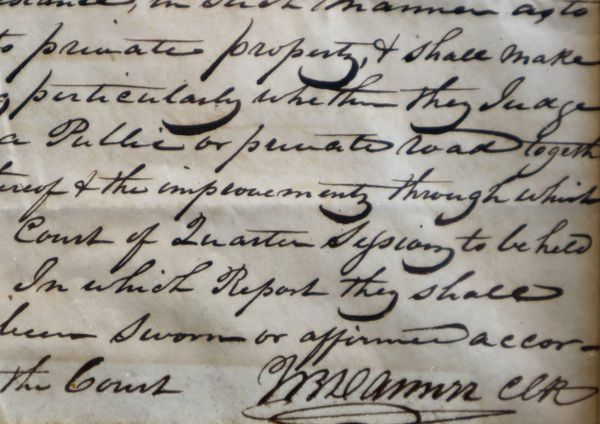 in such manner as to
to private property, & shall make
g perticularly whether they Judge
a Public or private road togeth
ereof & the improvements through which
Court of Quarter Sessions to be held
In which Report they shall
been Sworn or affirmed accor-
the Court Clk